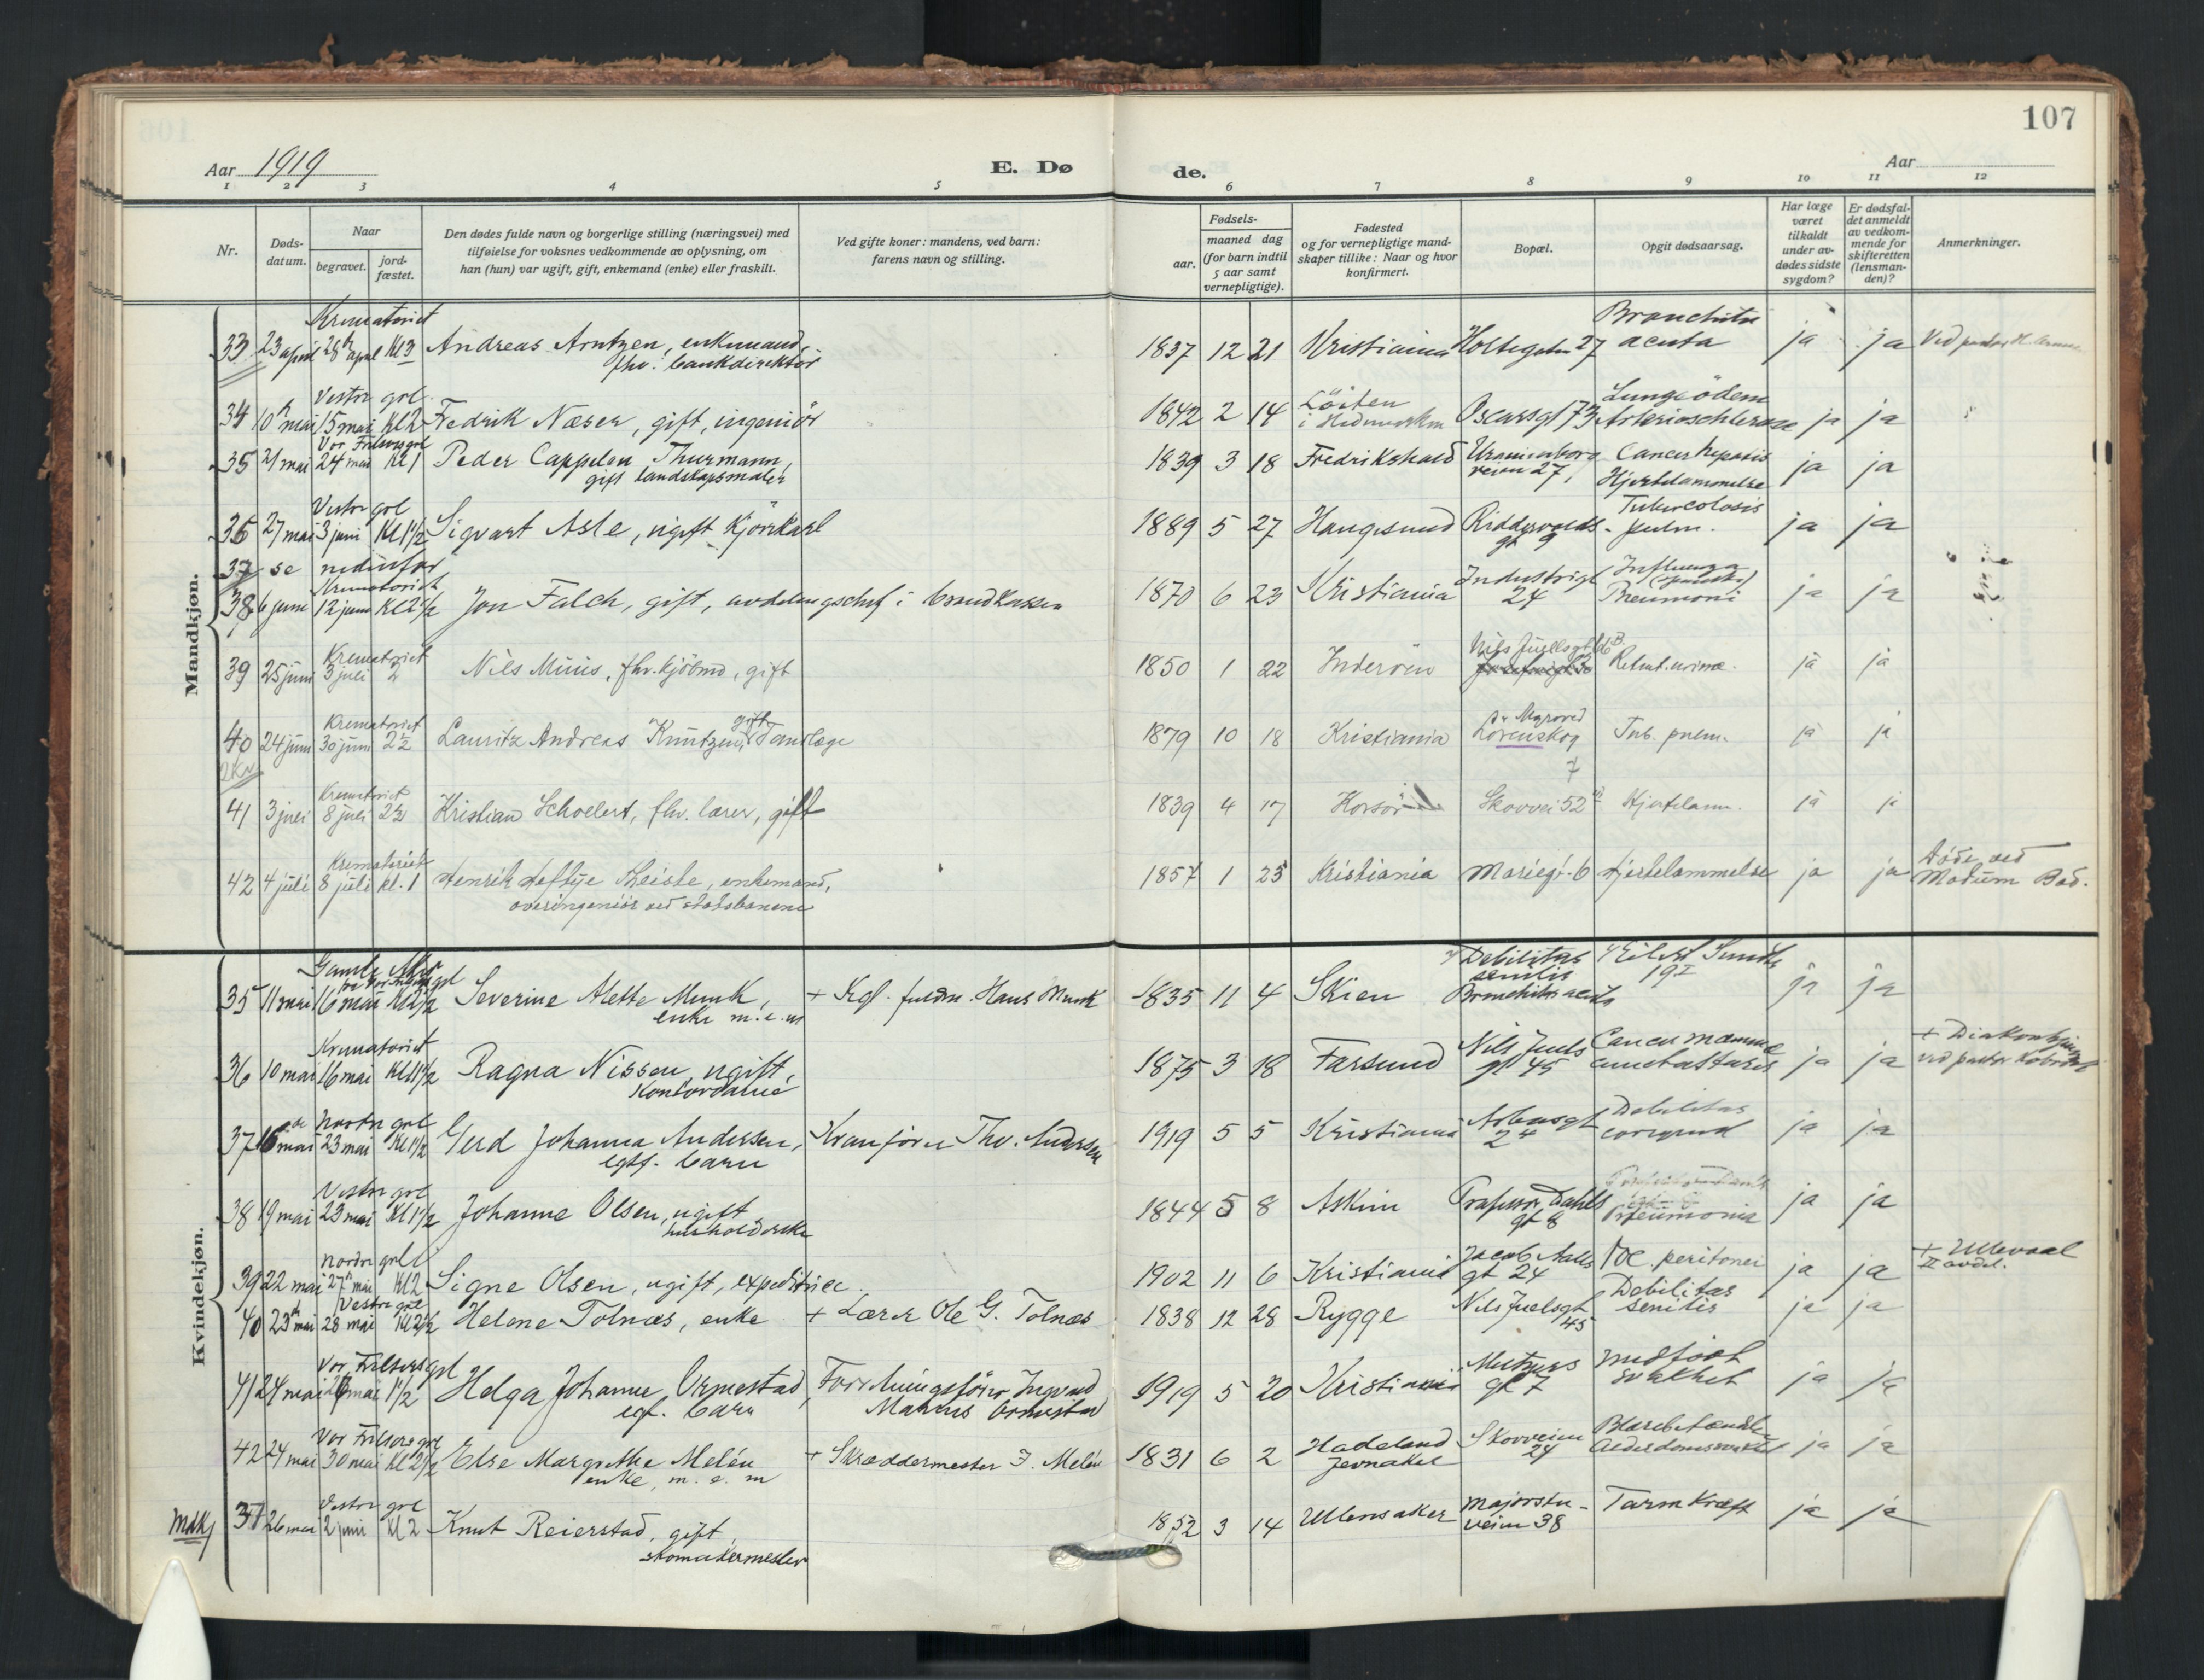 107
Aar 1919
E. Dø
de.
Aar
1 2 3 4 5 6 7 8 9 10 11 12
Nr.
Døds-
datum.
Naar
begravet.
jord-
fæstet.
Den dødes fulde navn og borgerlige stilling (næringsvei) med
tilføielse for voksnes vedkommende av oplysning, om
han (hun) var ugift, gift, enkemand (enke) eller fraskilt.
Ved gifte koner: mandens, ved barn:
farens navn og stilling.
Fødsels-
aar.
maaned dag
(for barn indtil
5 aar samt
vernepligtige).
Fødested
og for vernepligtige mand-
skaper tillike: Naar og hvor
konfirmert.
Bopæl.
Opgit dødsaarsag.
Har læge
været
tilkaldt
under av-
dødes sidste
sygdom?
Er dødsfal-
det anmeldt
av vedkom-
mende for
skifteretten
(lensman-
den)?
Anmerkninger.
Mandkjøn.
Krematoriet
33 23 april 28 april Kl 3 Andreas Arntzen, enkemand, 1837 12 21 Kristiania Holtegaten 27 acuta ja ja
fhv. bankdirektør
Vestre grl.
34 10 mai 15 mai Kl 2 Fedrik Næser, gift, ingeniør 1842 2 14 Løiten Oscarsgt 73 Lungeödem ja ja
i Hedmarken
Vor Frelsersgrl
35 21 mai 24 mai Kl 1 Peder Cappelen Thurmann, 1839 3 18 Fredrikshald Uranienborg Cancer hepatis ja ja
gift landskapsmaler veien 27, Hjertelammelse
Vestre grl
36 27 mai 3 juni Kl 1 1/2 Sigvart Asle, ugift Kjørekarl 1889 5 27 Haugesund Riddervolds Tuberculosis ja ja
gt 9 pulm.
37 se nedenfor
Krematoriet
38 6 juni 12 juni Kl 2 1/2 Jon Falch, gift, avdelingschef i brandkassen 1870 6 23 Kristiania Industrigt Influenza ja ja
24 Pneumoni
Krematoriet
39 25 juni 3 juli 2 Nils Müüs, fhv. kjøbmd, gift 1850 1 22 Inderøen Nils Juelsgt Retent. urinæ. ja ja
Krematoriet
40 24 juni 30 juni 2 1/2 Lauritz Andreas Knutzen, gift Tandlæge 1879 10 18 Kristiania Lørenskog Tub. pnem. ja ja
Krematoriet
41 3 juli 8 juli 2 1/2 Kristian Schoelert, fhv. lærer, gift 1839 4 17 Korsør Skovvei 52 Hjertelam. ja ja
Krematoriet
42 4 juli 8 juli kl. 1 Henrik Heftye Theiste, enkemand, 1857 1 23 Kristiania Mariegt. 6 Hjertelammelse ja ja Døde ved
overingeniør ved statsbanene Modum Bad.
Kvindekjøn.
Gamle Aker
35 11 mai 16 mai Kl 2 1/2 Severine Alette Munk, + Kgl. fuldm. Hans Munk 1835 11 4 Skien Debilitas senilis Eilert Sundts ja ja
enke m. e. m Bronchitis acuta 19 I
Krematoriet
36 10 mai 16 mai Kl 1 1/2 Ragna Nissen, ugift, 1875 3 18 Farsund Nils Juels Cancer mammæ ja ja + Diakonhj
Kontordame gt 45
Nordre grl
37 16 mai 23 mai Kl 1 1/2 Gerd Johanna Andersen, Kranfører Thv. Andersen 1919 5 5 Kristiania Arbosgt Debilitas ja ja
egtf. barn 24 congenit
Vestre grl
38 19 mai 23 mai Kl 1 1/2 Johanne Olsen, ugift 1844 5 8 Askim Professor Dahls Pneumonia ja ja
husholderske gt 8
Nordre grl
39 22 mai 27 mai Kl 2 Signe Olsen, ugift, expeditrice. 1902 11 6 Kristiania Jacob Aalls Tbc. peritonei ja ja + Ullevaal
gt 24 II avdel.
Vestre grl
40 23 mai 28 mai Kl 2 1/2 Helene Tolnæs, enke + Lærer Ole G. Tolnæs 1838 12 28 Rygge Nils Juelsgt Debilitas senilis ja ja
45
Vor Frelsers grl
41 24 mai mai 1 1/2 Helga Johanne Ormestad, Forretningsfører Ingvald 1919 5 20 Kristiania Meltzers medfødt ja ja
egf. barn Marius Ormestad gt 7 svakhet
Vor Frelsers grl
42 24 mai 30 mai Kl 2 1/2 Else Margrethe Melén + Skræddermester J. Melén 1831 6 2 Hadeland Skovveien Blærebetændelse ja ja
enke, m. e. m Jevnaker 24 Alderdomssvakhet
Vestre grl
Mdkj 37 26 mai 2 juni Kl 2 Knut Reierstad, gift, 1852 3 14 Ullensaker Majorstu- Tarmkræft ja ja
skomakermester veien 38